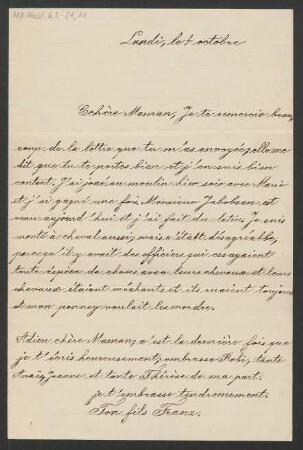 Lundi, le 4 octobre
Chère Maman, Je te remercie beau-
coup de la lettre que tu m'as envoyée, elle me
dit que tu te portes bien et j'en suis bien
content. J'ai joué au moulin hier soir avec Marie
et j'ai gagné une fois. Monsieur Jakobson est
venu aujourd'hui et j'ai fait du latin. Je suis
monté à cheval aussi, mais c'était désagréable,
parcequ'il y avait des officiers qui essayaient
toute espèce de choses avec leurs chevaux et leurs
chevaux étaient méchants et ils ruaient toujours
et mon poney voulait les mordre.
Adieu chère Maman, c'est la dernière fois que
je t'écris heureusement, embrasse Robi, tante
Anaïs, Jeanne et tante Thérèse de ma part.
je t'embrasse tendrement.
Ton fils Franz.